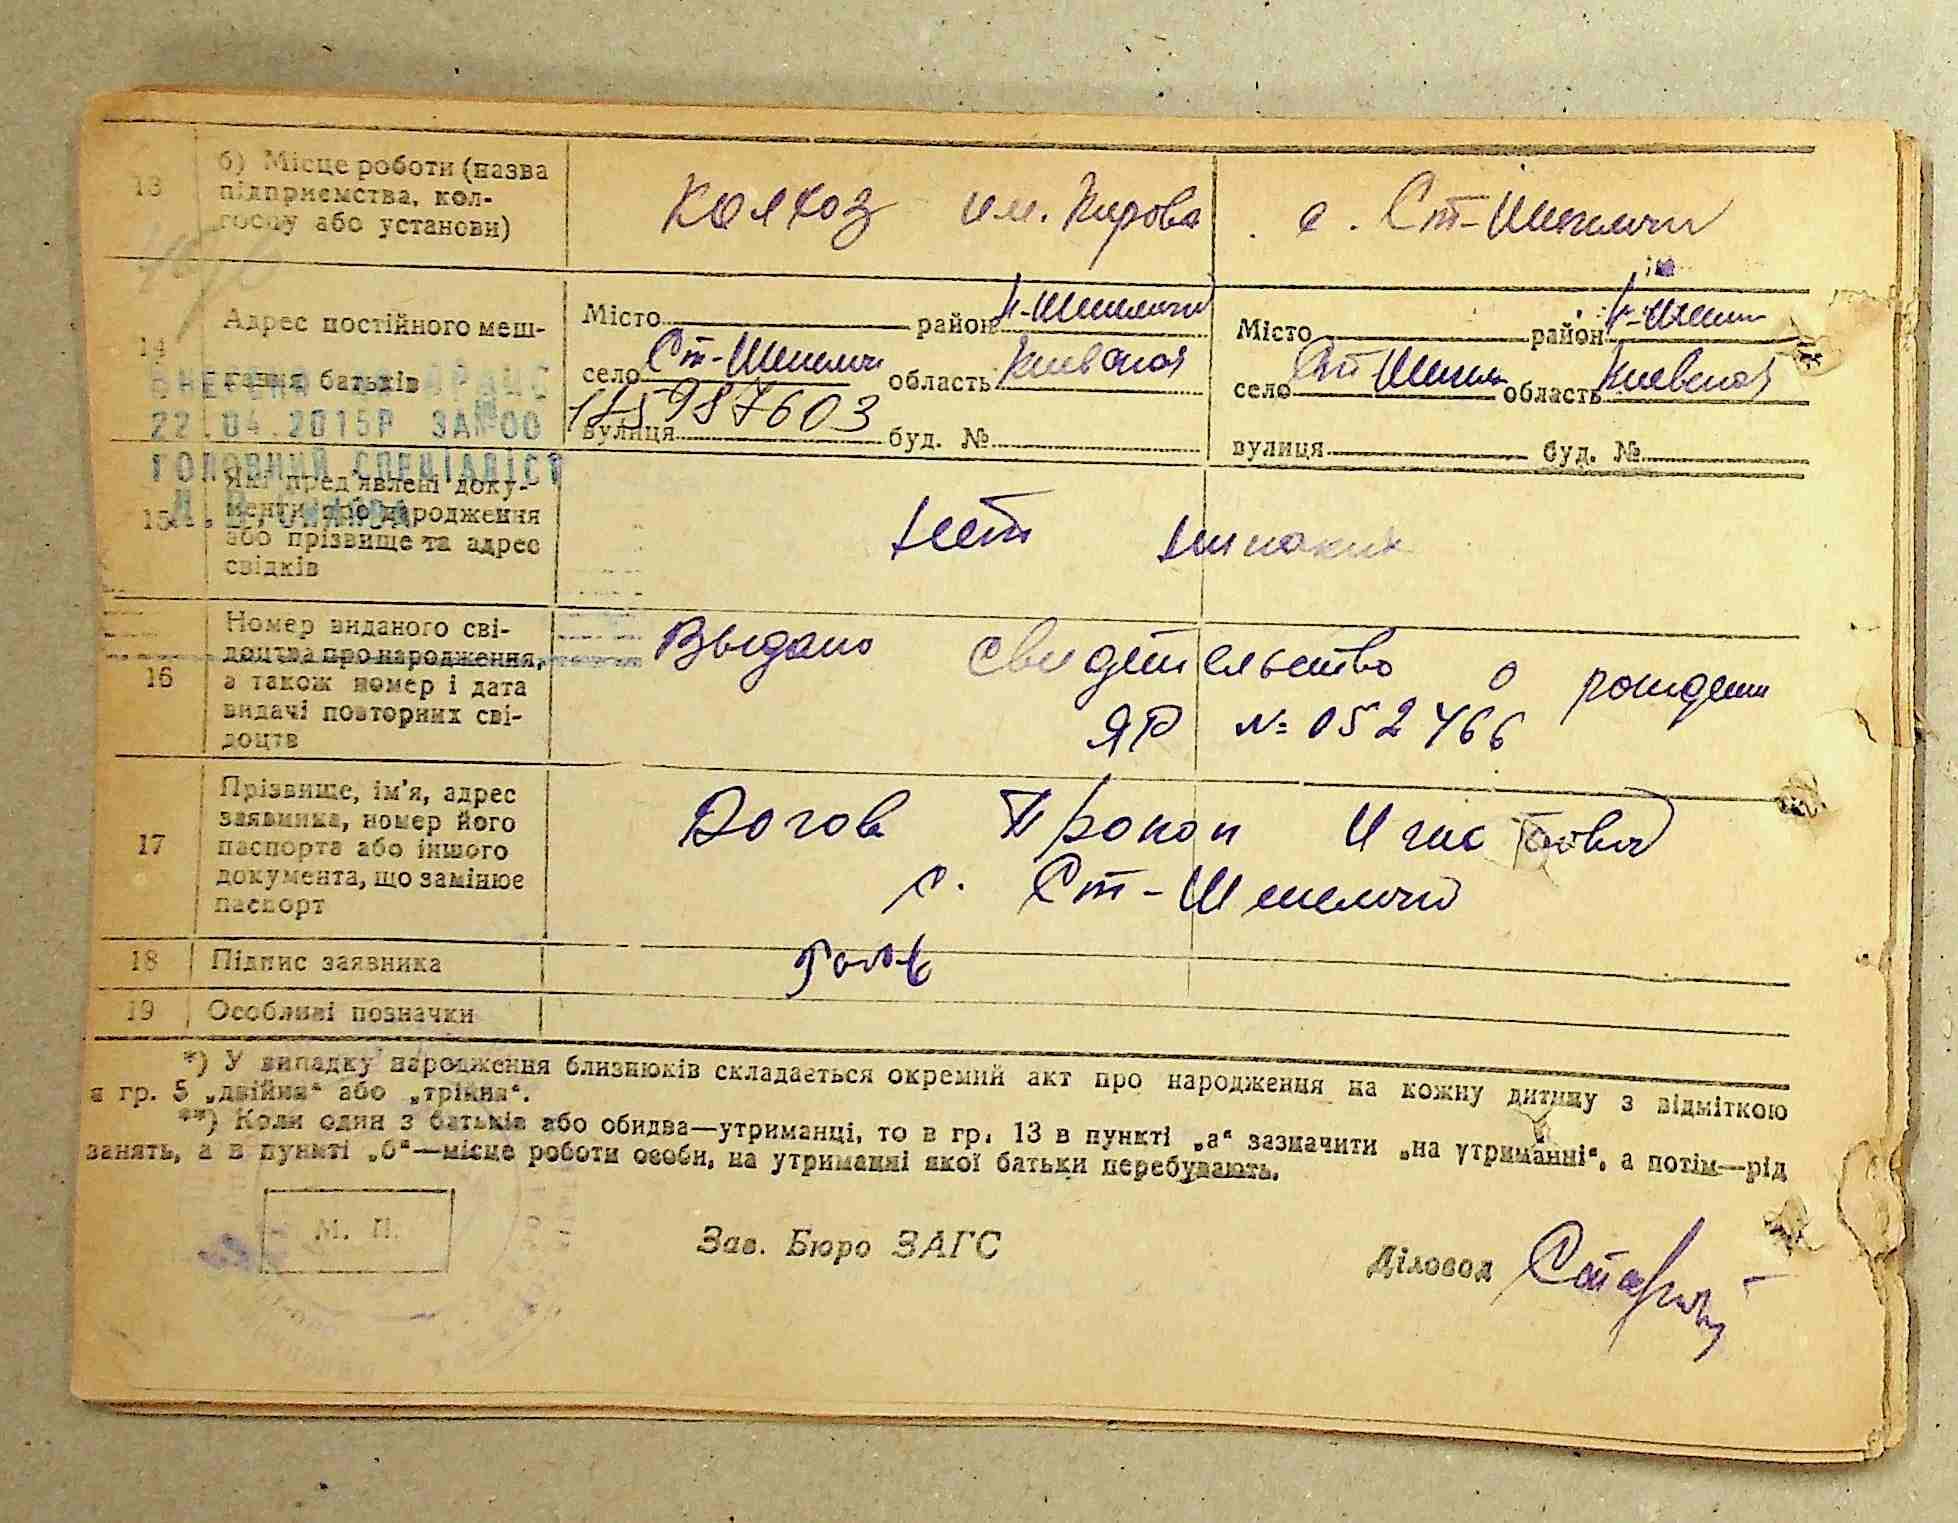 13
б) Місце роботи (назва
підприємства, кол-
госпу або установи)
Колхоз им. Кирова
с. Ст-Шепеличи
14
Адрес постійного меш-
кання батьків
Місто район К-Шепеличи
село Ст-Шепеличи область Киевская
145987603
вулиця буд. №
Місто район
село Ст-Шепел область Киевская
вулиця буд. №
22.04.2015Р ЗА №00
ГОЛОВНИЙ СПЕЦІАЛІСТ
15
Які пред'явлені доку-
менти про народження
або прізвище та адрес
свідків
нет никаких
16
Номер виданого сві-
доцтва про народження,
а також номер і дата
видачі повторних сві-
доцтв
Выдано свидетельство о рождении
ЯР № 052466
17
Прізвище, ім'я, адрес
заявника, номер його
паспорта або іншого
документа, що замінює
паспорт
Прокоп
с. Ст-Шепеличи
18
Підпис заявника
19
Особливі позначки
*) У випадку народження близнюків складається окремий акт про народження на кожну дитину з відміткою
в гр. 5 „двійня“ або „трійня“.
**) Коли один з батьків або обидва—утриманці, то в гр. 13 в пункті „а“ зазначити „на утриманні“, а потім—рід
занять, а в пункті „б“—місце роботи особи, на утриманні якої батьки перебувають.
М. П.
Зав. Бюро ЗАГС
Діловод